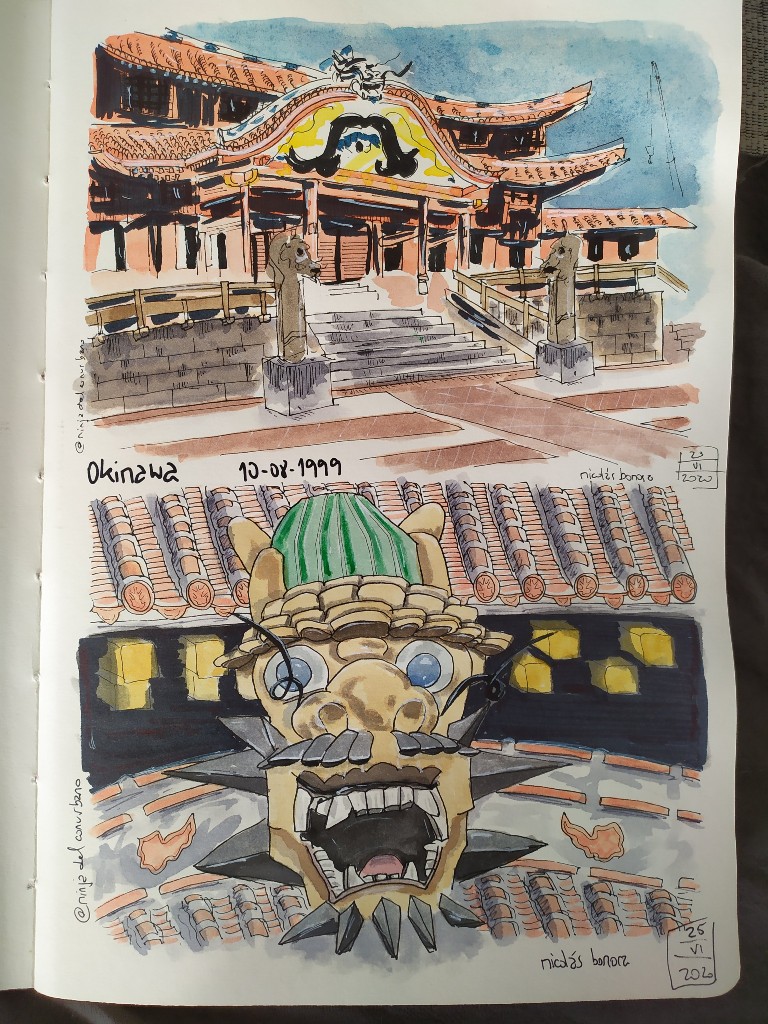 @ninja del conurbano
Okinawa 10-08-1999
nicolás bonora
20
VI
2020
@ninja del conurbano
nicolás bonora
25
VI
2020